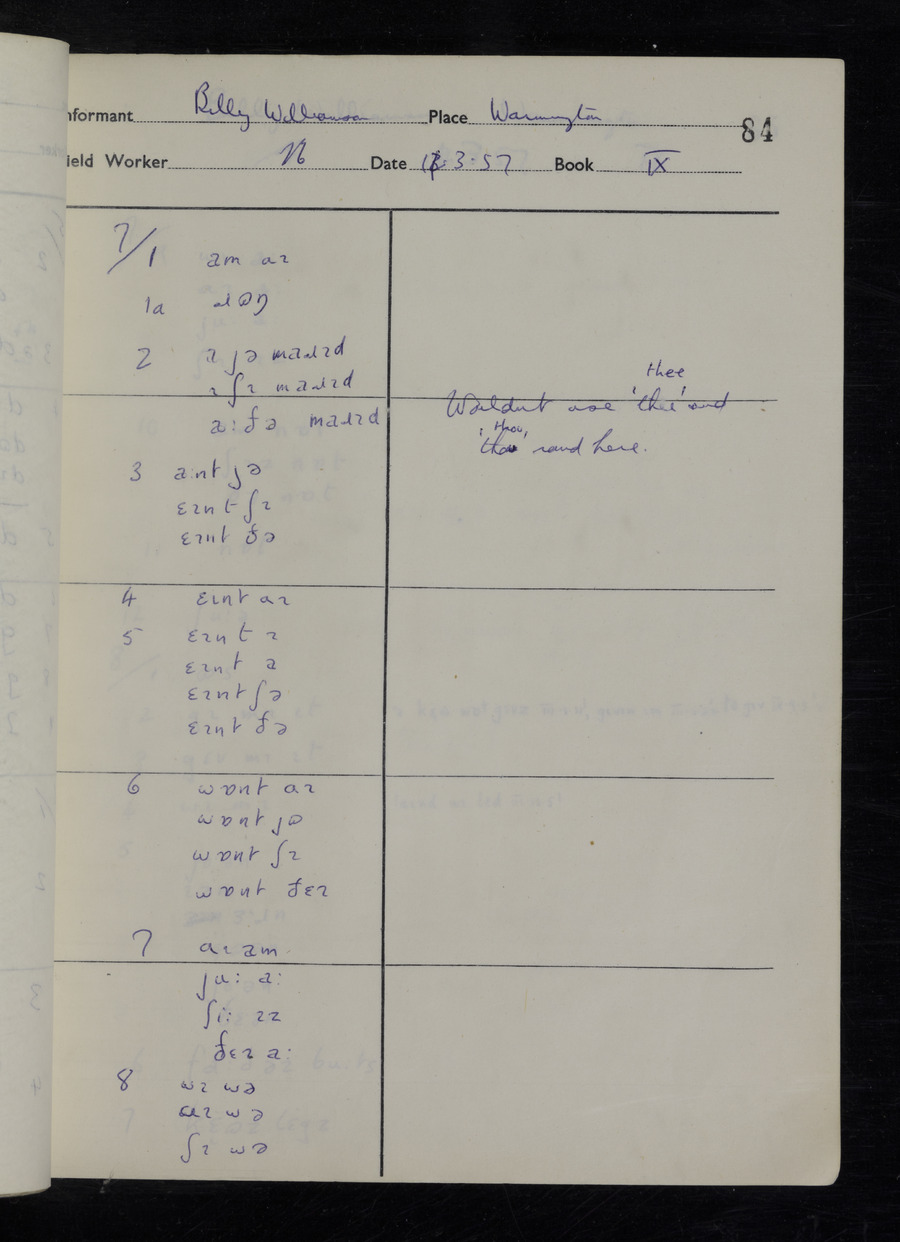 nformant Billy Williamson Place Warmington 84
ield Worker N Date 18.3.57 Book IX
7/1 am aɪ
1a
2 a jə maɹɪd
ɪ ʃɪ maɹɪd
thee
Wouldn't use 'thee' and
a:ðə maɹɪd
'thou'
round here.
3 a:nt jə
ɛɪnt ʃɪ
ɛɪnt ðə
4 ɛɪnt aɪ
5 ɛɪnt ɪ
ɛɪnt a
ɛɪnt ʃə
ɛɪnt ðə
6 wɒnt aɪ
wɒnt jə
wɒnt ʃɪ
wɒnt ðɛɪ
7 aɪ am
ju: a:
ʃi: ɪz
ðɛɪ a:
8 aɪ wə
wə
ʃɪ wə